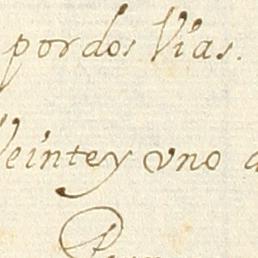 por dos Vias.
Veinte y vno